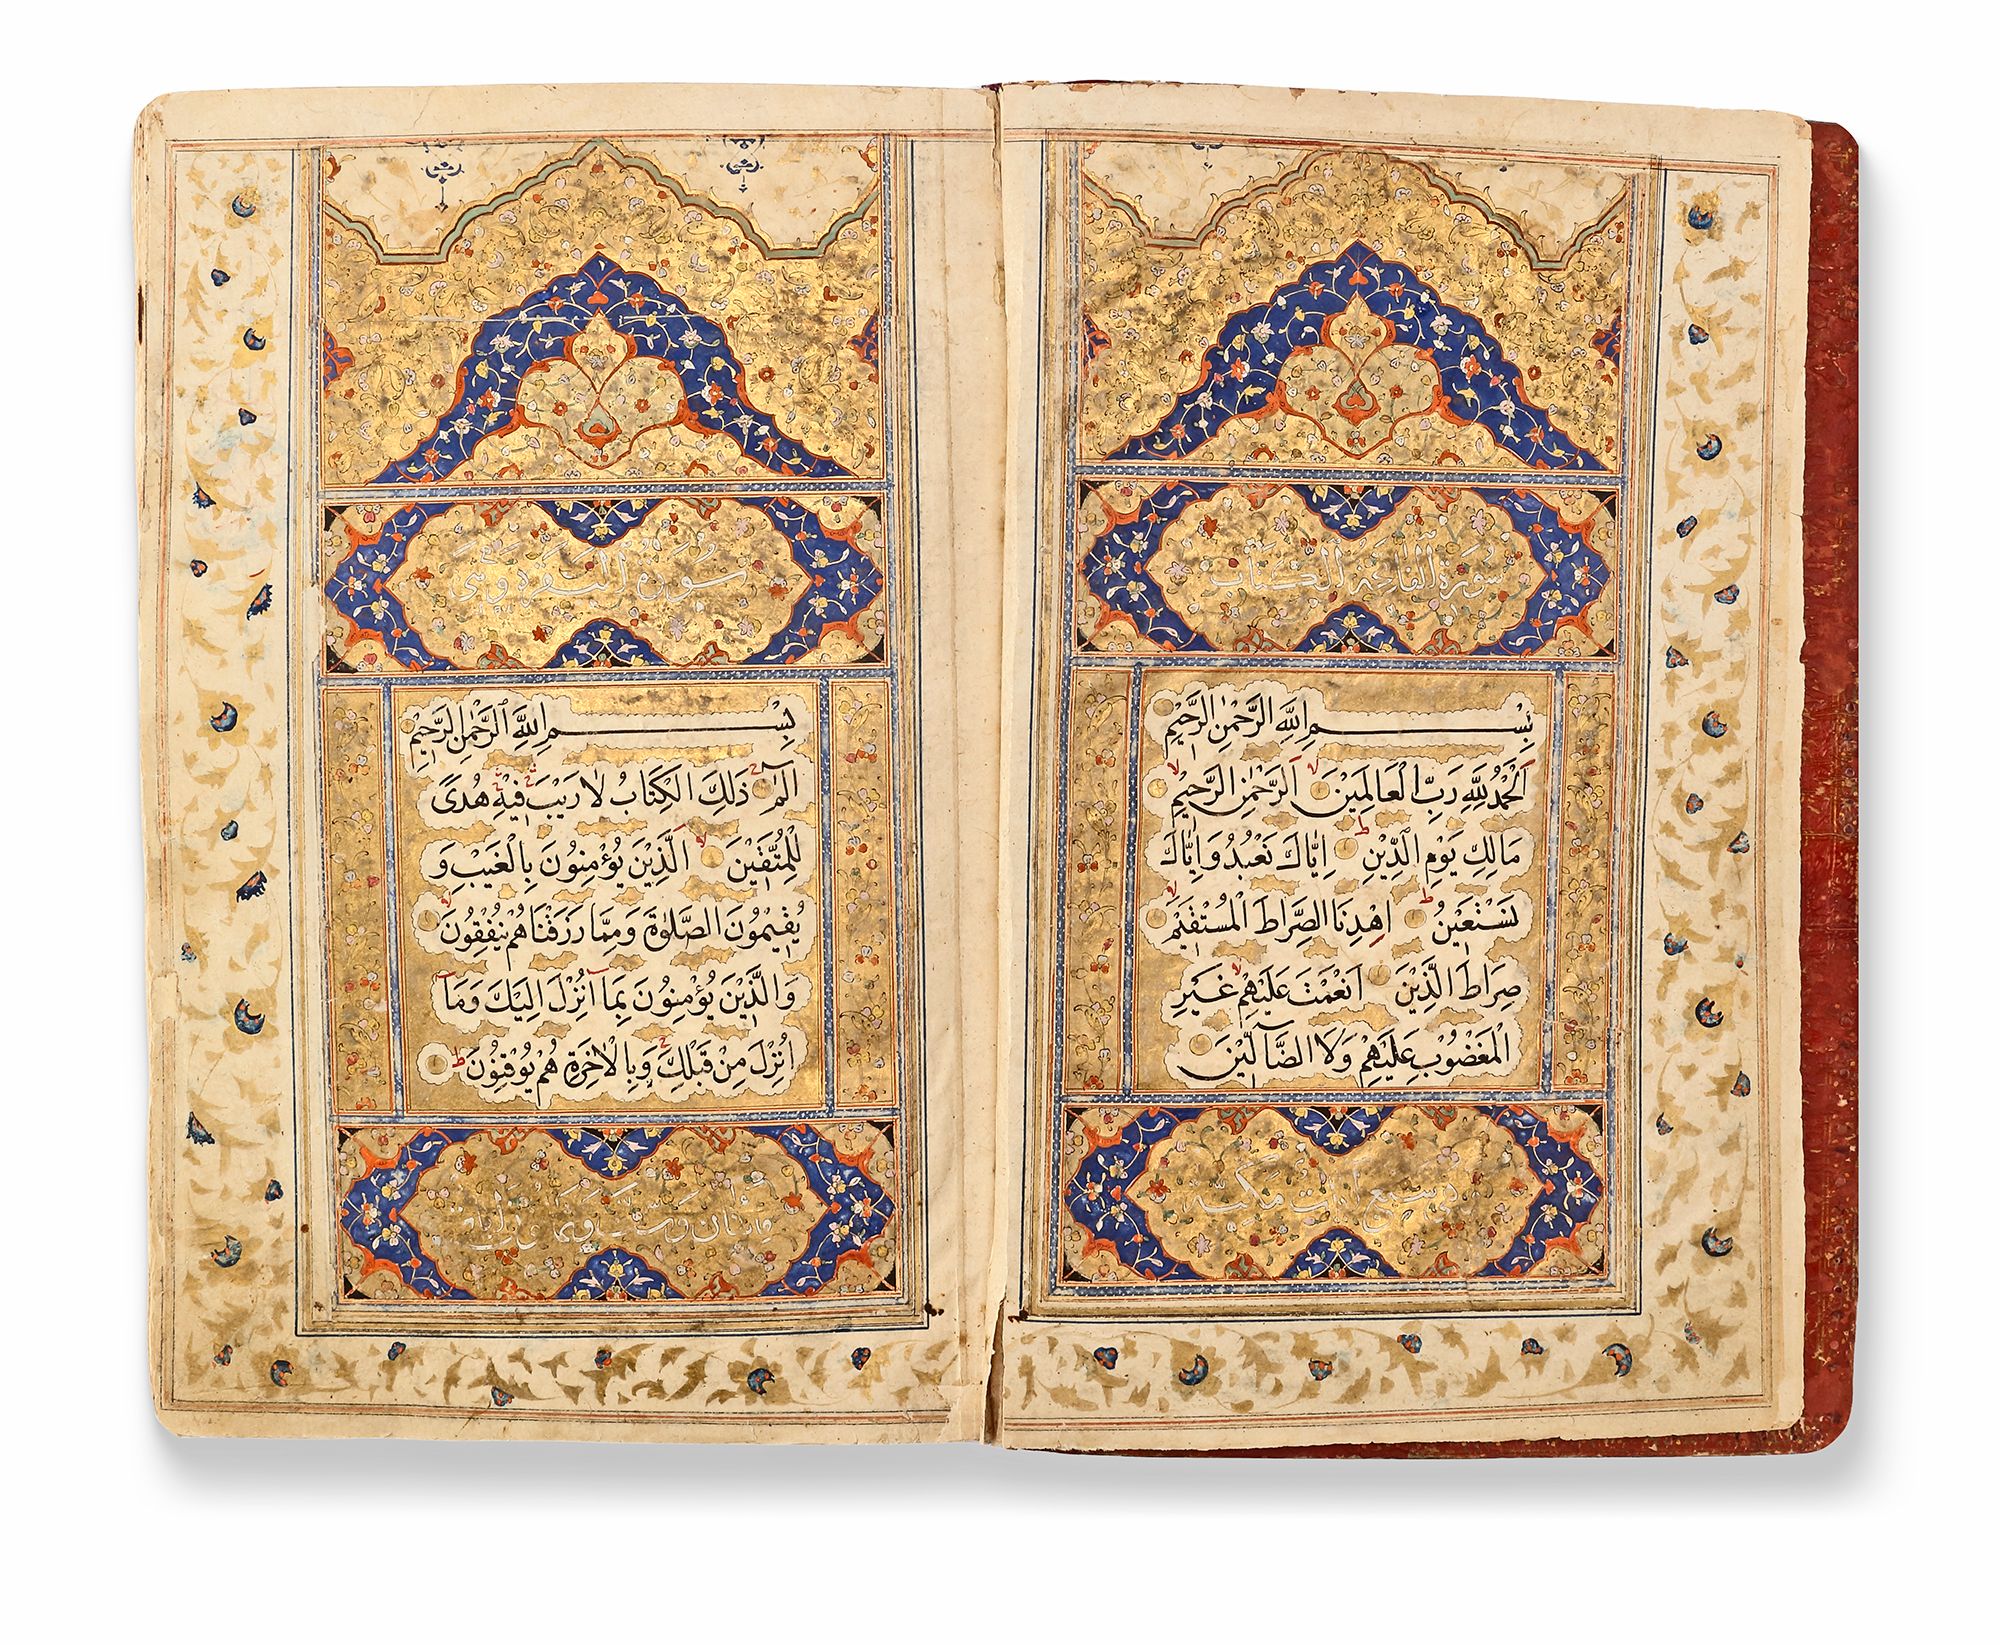 سورة الفاتحة الكتاب
بِسْمِ اللَّهِ الرَّحْمٰنِ الرَّحِيْمِ
اَلْحَمْدُ لِلَّهِ رَبِّ الْعَالَمِيْنَ لا اَلرَّحْمٰنِ الرَّحِيْمِ لا
مَالِكِ يَوْمِ الدِّيْنِ ط اِيَّاكَ نَعْبُدُ وَاِيَّاكَ
نَسْتَعِيْنُ ط اِهْدِنَا الصِّرَاطَ الْمُسْتَقِيْمَ لا
صِرَاطَ الَّذِيْنَ اَنْعَمْتَ عَلَيْهِمْ لا غَيْرِ
الْمَغْضُوْبِ عَلَيْهِمْ وَلَا الضَّآلِّيْنَ
سبع ايات مكية
سورة البقرة
بِسْمِ اللَّهِ الرَّحْمٰنِ الرَّحِيْمِ
الٓمٓ ج ذٰلِكَ الْكِتَابُ لَا رَيْبَ فِيْهِ هُدًى
لِلْمُتَّقِيْنَ لا اَلَّذِيْنَ يُؤْمِنُوْنَ بِالْغَيْبِ وَ
يُقِيْمُوْنَ الصَّلٰوةَ وَمِمَّا رَزَقْنَاهُمْ يُنْفِقُوْنَ لا
وَالَّذِيْنَ يُؤْمِنُوْنَ بِمَآ اُنْزِلَ اِلَيْكَ وَمَآ
اُنْزِلَ مِنْ قَبْلِكَ ج وَبِالْاٰخِرَةِ هُمْ يُوْقِنُوْنَ ط
مائتان وست وثمانون اية